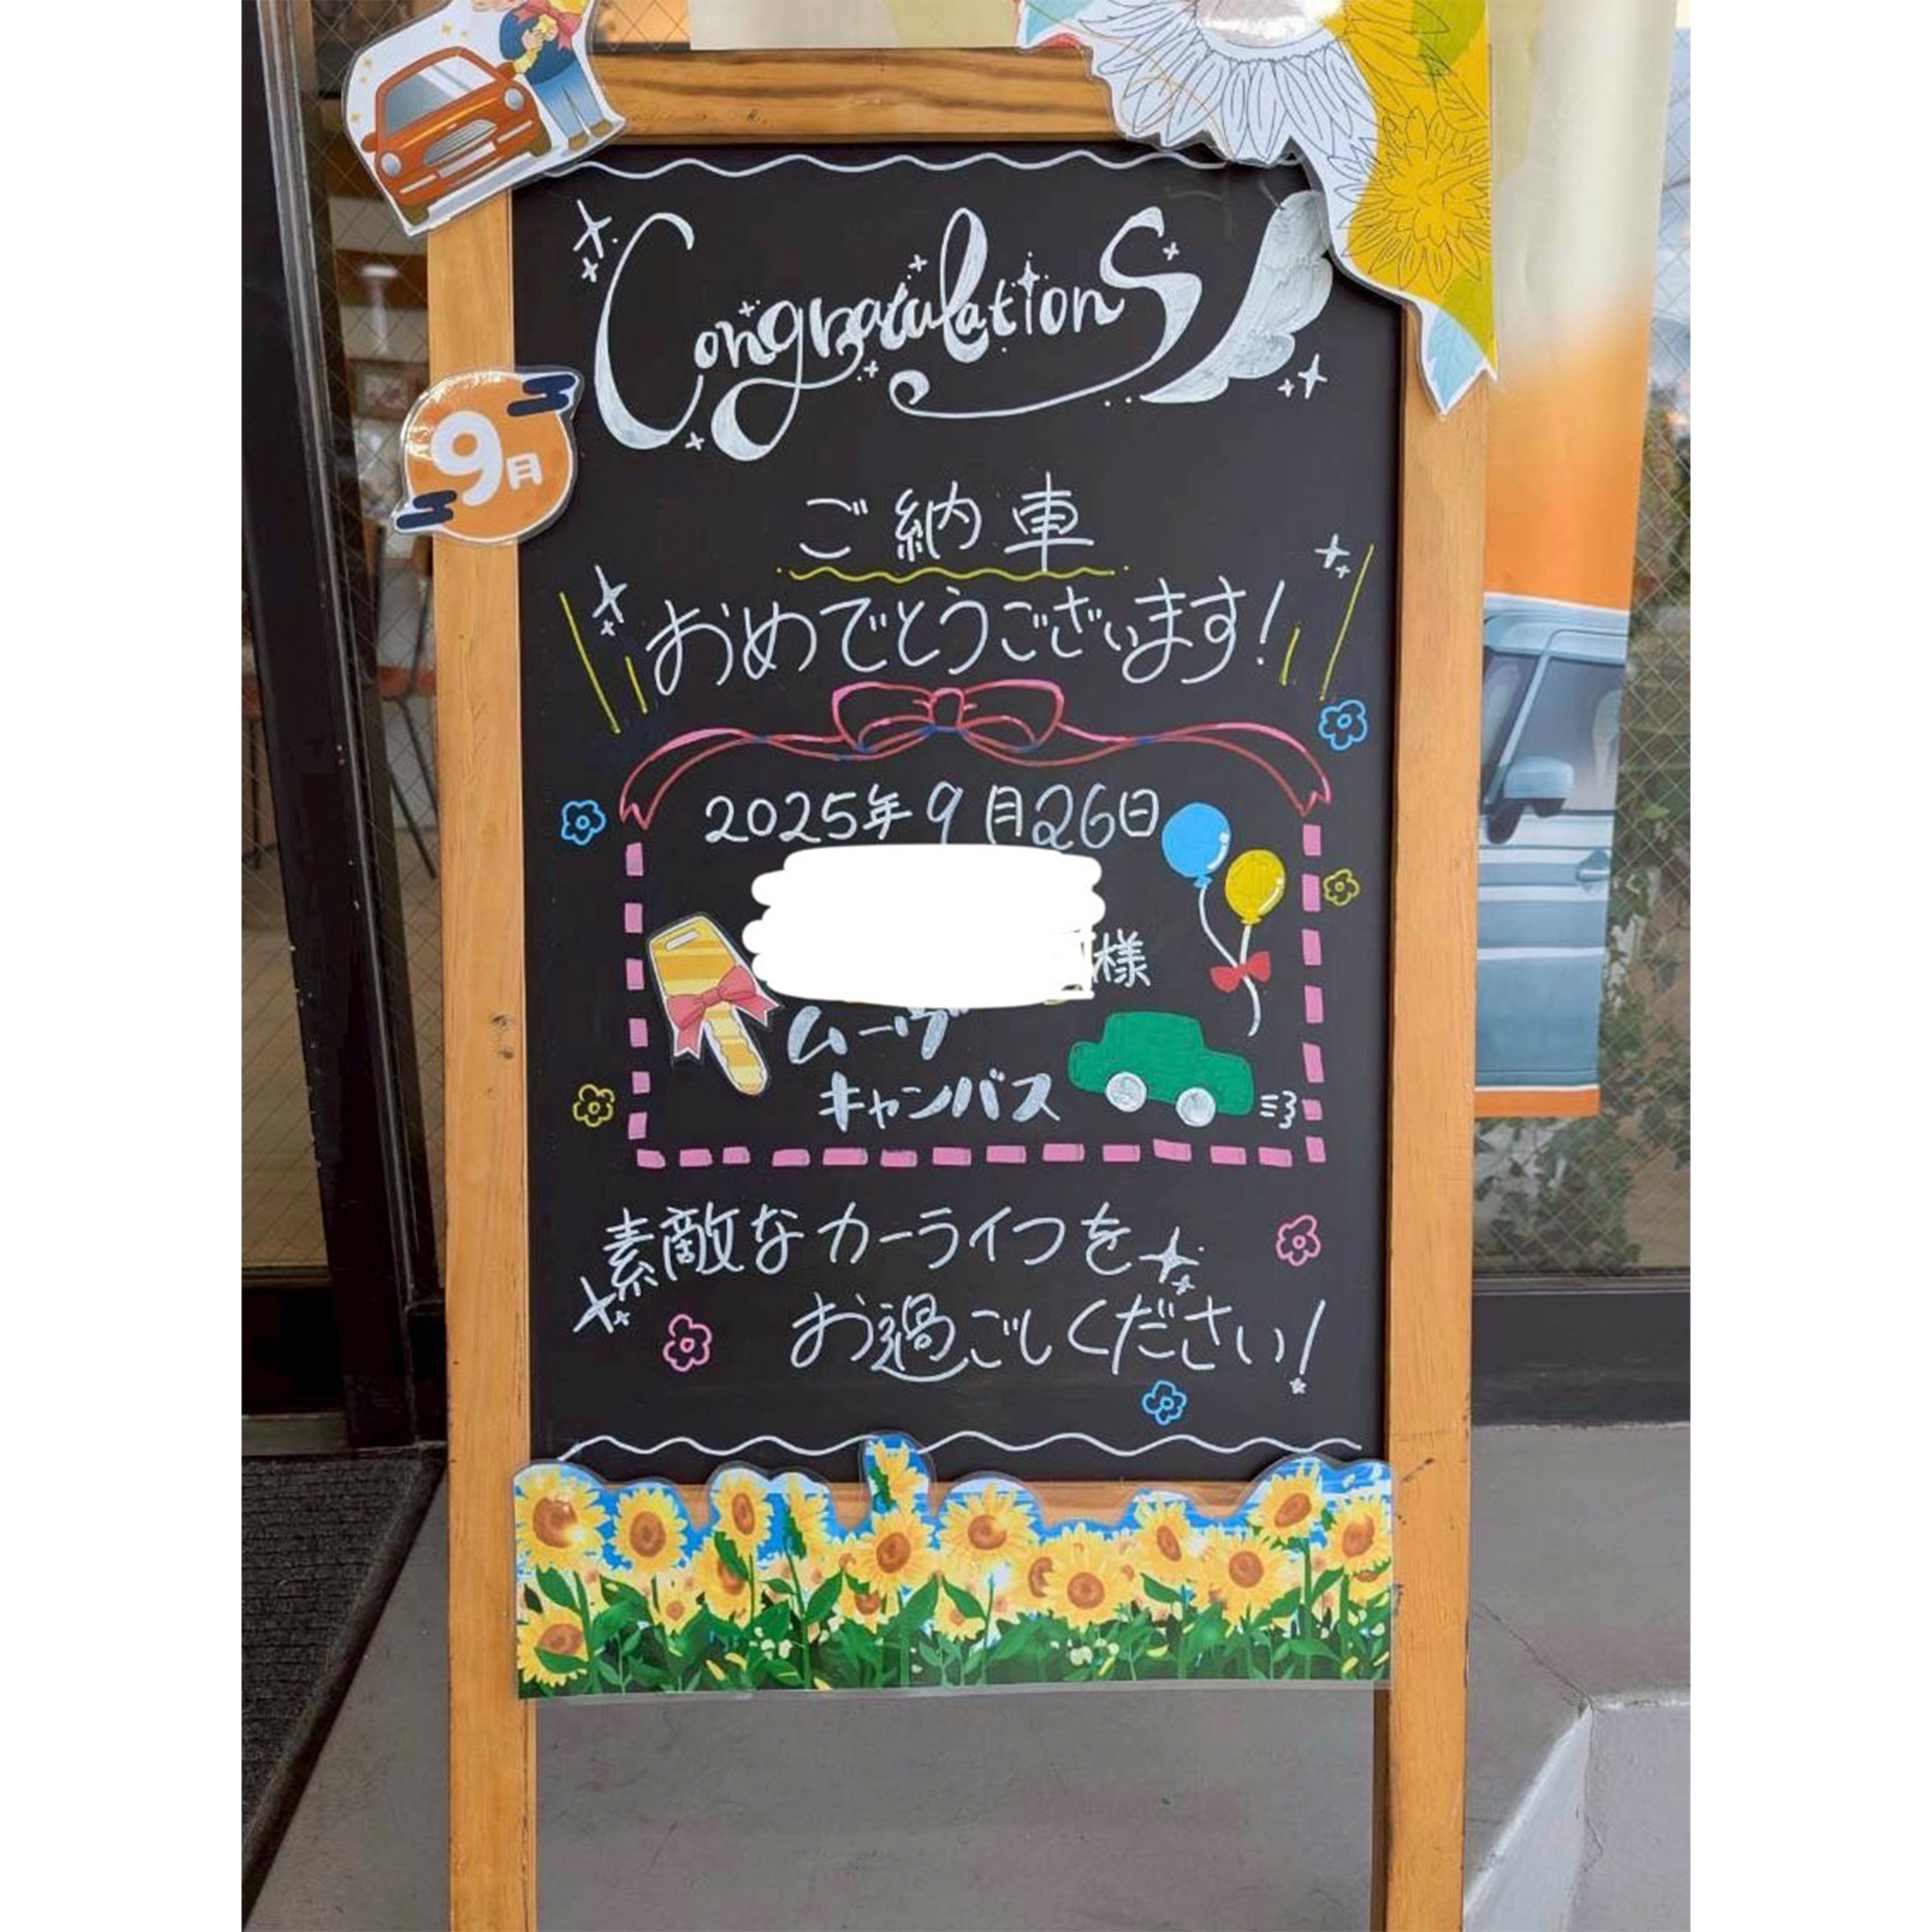 Congratulations
9月
ご納車
おめでとうございます!
2025年9月26日
様
ムーヴ
キャンバス
素敵なカーライフを
お過ごしください!